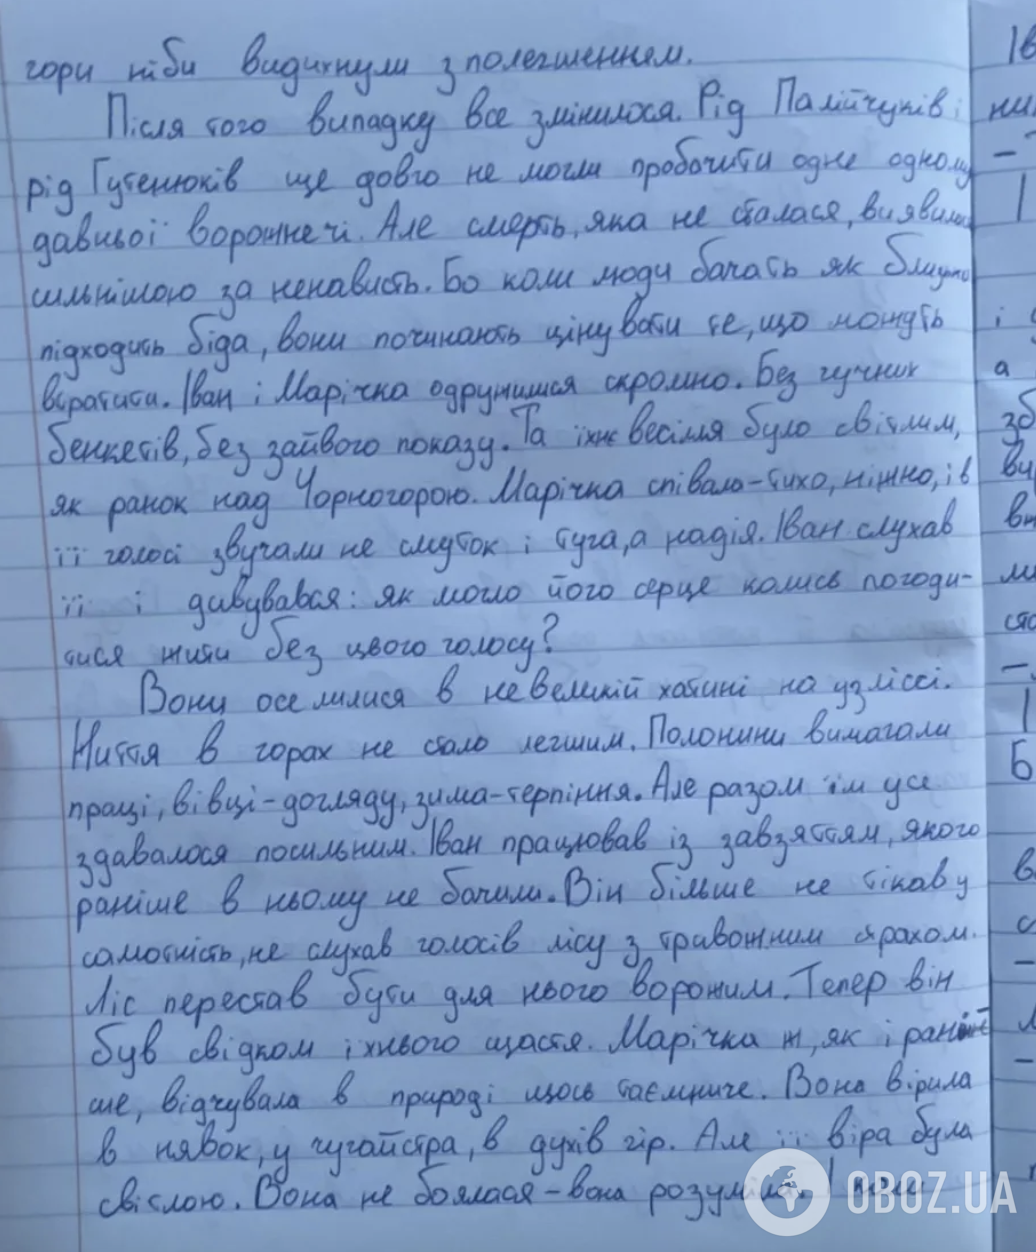 гори ніби видихнули з полегшенням.
Після того випадку все змінилося. Рід Палійчуків і
рід Гутенюків ще довго не могли пробачити одне одному
давньої ворожнечі. Але смерть, яка не сталася, виявилась
сильнішою за ненависть. Бо коли люди бачать як близько
підходить біда, вони починають цінувати те, що можуть
втратити. Іван і Марічка одружилися скромно. Без гучних
бенкетів, без зайвого показу. Та їхнє весілля було світлим,
як ранок над Чорногорою. Марічка співала-тихо, ніжно, і в
її голосі звучали не смуток і туга, а надія. Іван слухав
її і дивувався: як могло його серце колись погоди-
тися жити без цього голосу?
Вони оселилися в невеликій хатині на узліссі.
Життя в горах не стало легшим. Полонини вимагали
праці, вівці-догляду, зима-терпіння. Але разом їм усе
здавалося посильним. Іван працював із завзяттям, якого
раніше в ньому не бачили. Він більше не тікав у
самотність, не слухав голосів лісу з тривожним страхом.
Ліс перестав бути для нього ворожим. Тепер він
був свідком їхнього щастя. Марічка ж, як і рані
ше, відчувала в природі щось таємниче. Вона вірила
в нявок, у чугайстра, в духів гір. Але її віра була
світлою. Вона не боялася-вона розуміла. І коли
OBOZ.UA